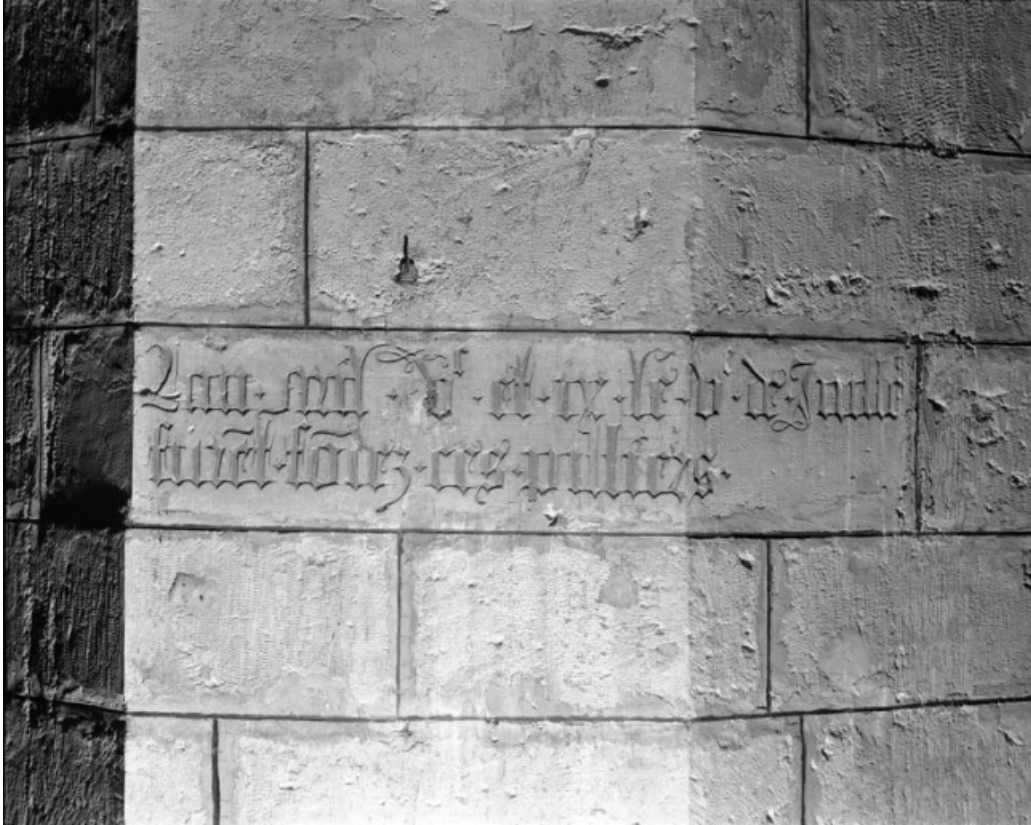 Lan · mil · vᶜ · et · ix · le · vᵉ · de · Juille
furēt · fōdez · ces · pilliers ·